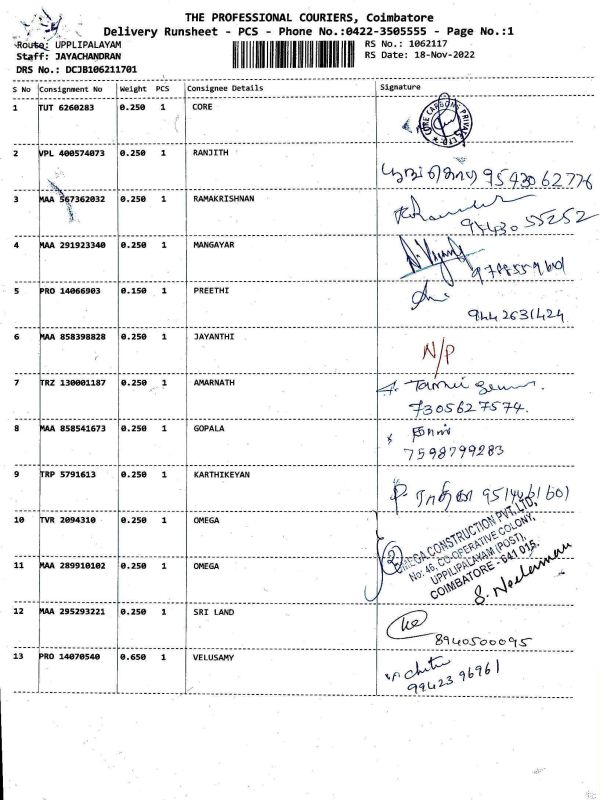 THE PROFESSIONAL COURIERS, Coimbatore
Delivery Runsheet - PCS - Phone No.:0422-3505555 - Page No.:1
Route: UPPLIPALAYAM RS No.: 1062117
Staff: JAYACHANDRAN RS Date: 18-Nov-2022
DRS No.: DCJB106211701
S No Consignment No Weight PCS Consignee Details Signature
1 TUT 6260283 0.250 1 CORE
CORE CARBONS PRIVATE LTD.
2 VPL 400574073 0.250 1 RANJITH
9543062776
3 MAA 567362032 0.250 1 RAMAKRISHNAN
9443055252
4 MAA 291923340 0.250 1 MANGAYAR
5 PRO 14066903 0.150 1 PREETHI
9442631424
6 MAA 858398828 0.250 1 JAYANTHI
N/P
7 TRZ 130001187 0.250 1 AMARNATH
7305627574.
8 MAA 858541673 0.250 1 GOPALA
7598799283
9 TRP 5791613 0.250 1 KARTHIKEYAN
10 TVR 2094310 0.250 1 OMEGA
2
OMEGA CONSTRUCTION PVT.LTD,
No: 46, CO-OPERATIVE COLONY,
UPPILIPALAYAM (POST),
COIMBATORE - 641 015.
11 MAA 289910102 0.250 1 OMEGA
12 MAA 295293221 0.250 1 SRI LAND
8940500095
13 PRO 14070540 0.650 1 VELUSAMY
99423 96961